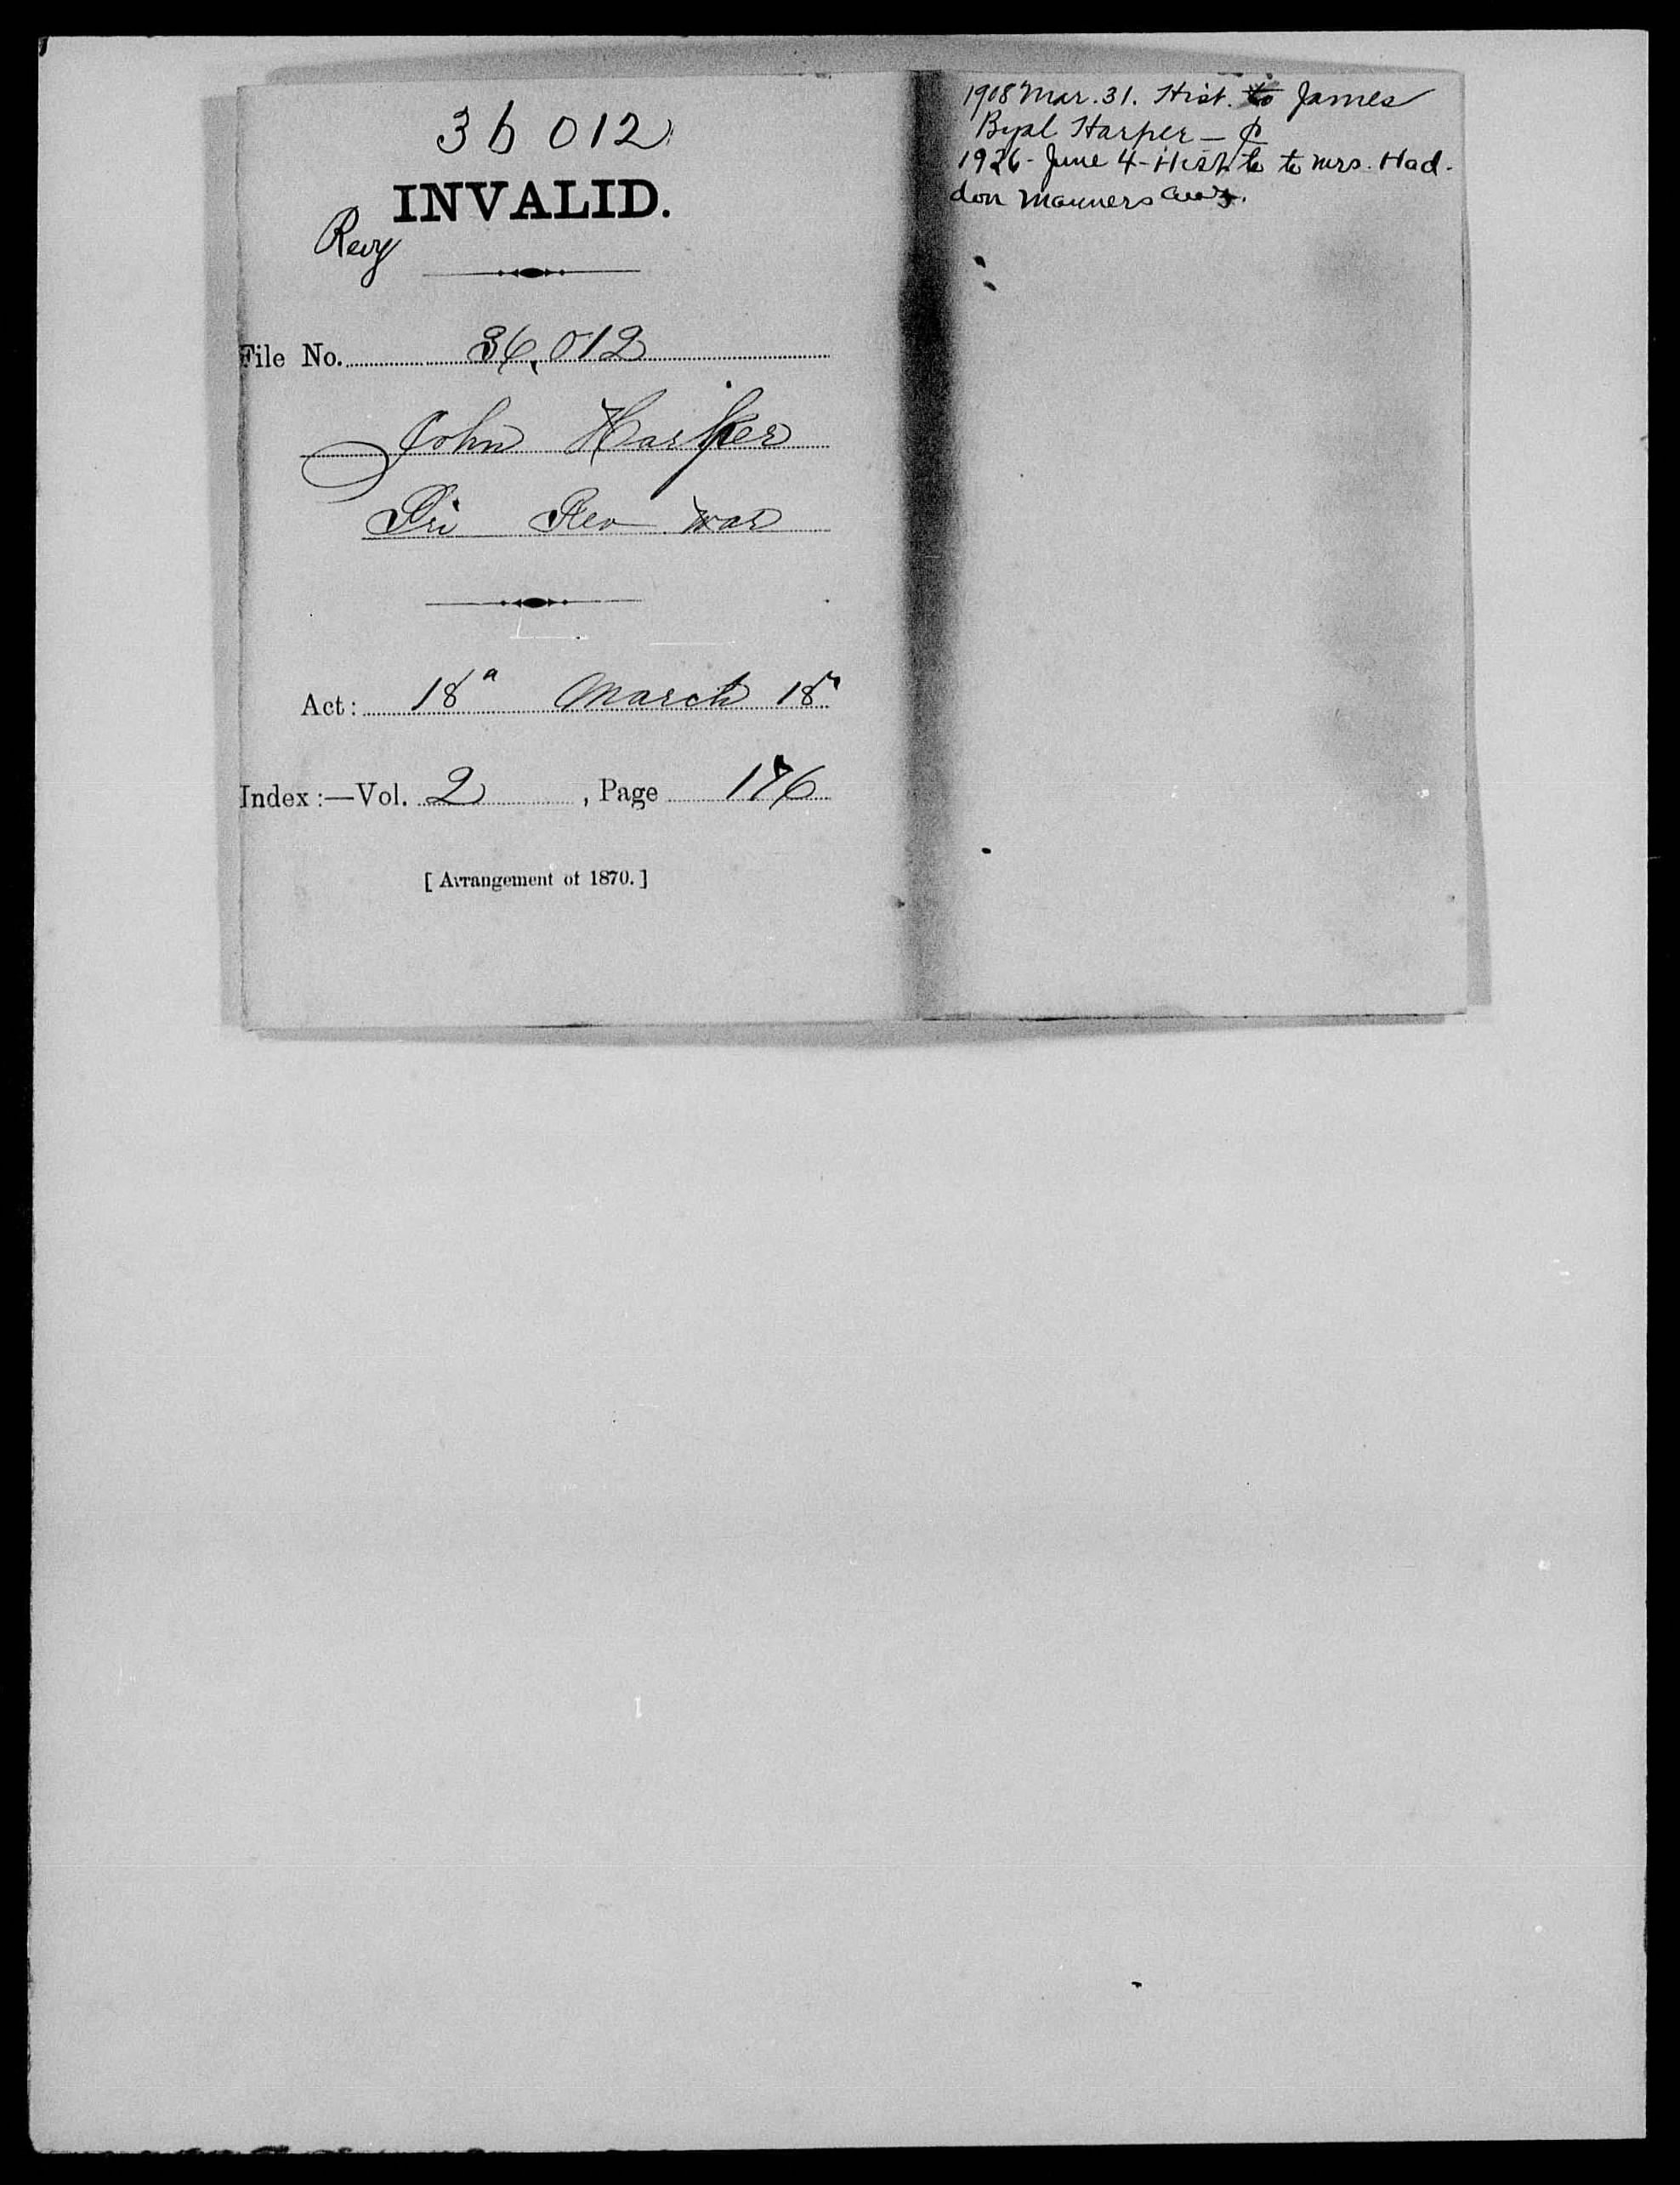 36 012
INVALID.
Rev
File No. 36,012
John Harper
Pri Rev War
Act: 18" March 18"
Index:—Vol. 2, Page 176
[Arrangement of 1870.]
1908 Mar. 31. Hist. to James
Byal Harper –
1926 - June 4 - Hist to Mrs. Had-
don Manners